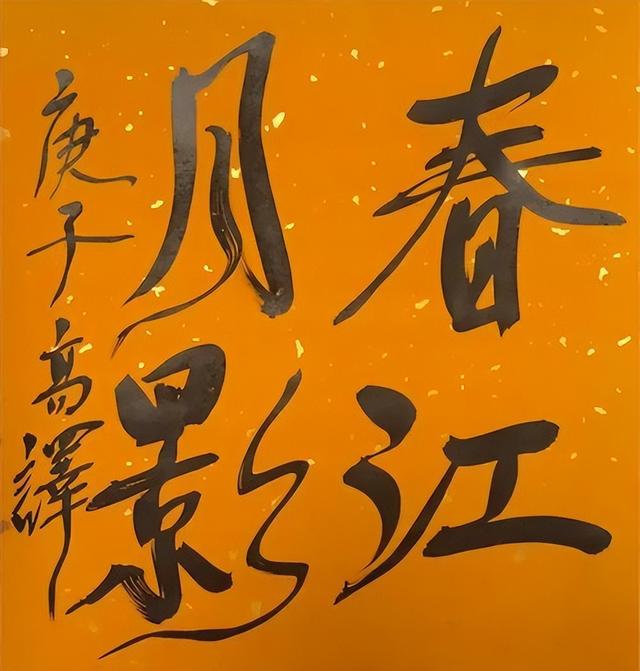 春江
月影
庚子高譯